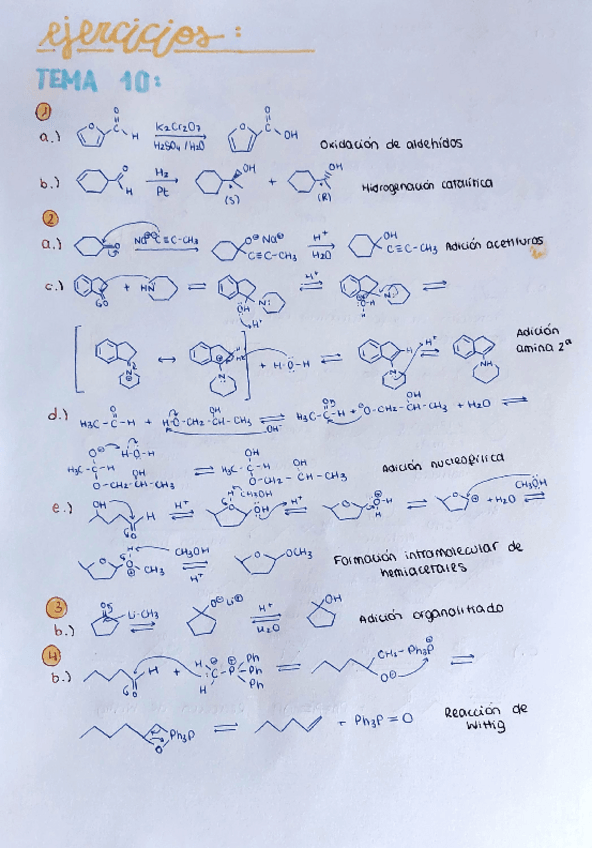 ejercicios:
TEMA 10:
1
a.) O C H K2Cr2O7 H2SO4 / H2O O C OH Oxidación de aldehídos
b.) O H H2 Pt OH (S) + OH (R) Hidrogenación catalítica
2
a.) O Na⊕ ⊖C≡C-CH3 O⊖ Na⊕ C≡C-CH3 H+ H2O OH C≡C-CH3 Adición acetiluros
c.) + HN OH N H+
+ H-O-H H+ NH Adición amina 2ª
d.) H3C-C-H + HO-CH2-CH-CH3 OH OH- H3C-C-H + ⊖O-CH2-CH-CH3 OH + H2O
H3C-C-H O⊖ O-CH2-CH-CH3 OH H-O-H H3C-C-H OH O-CH2-CH-CH3 OH Adición nucleofílica
e.) OH H H+ CH3OH H+ + H2O CH3OH
O CH3 CH3OH H+ O OCH3 Formación intramolecular de hemiacetales
3
b.) Li-CH3 O⊖ Li⊕ H+ H2O OH Adición organolitiado
4
b.) H + H C P Ph Ph Ph CH2-Ph3P⊕ O⊖
Ph3P O + Ph3P=O Reacción de Wittig